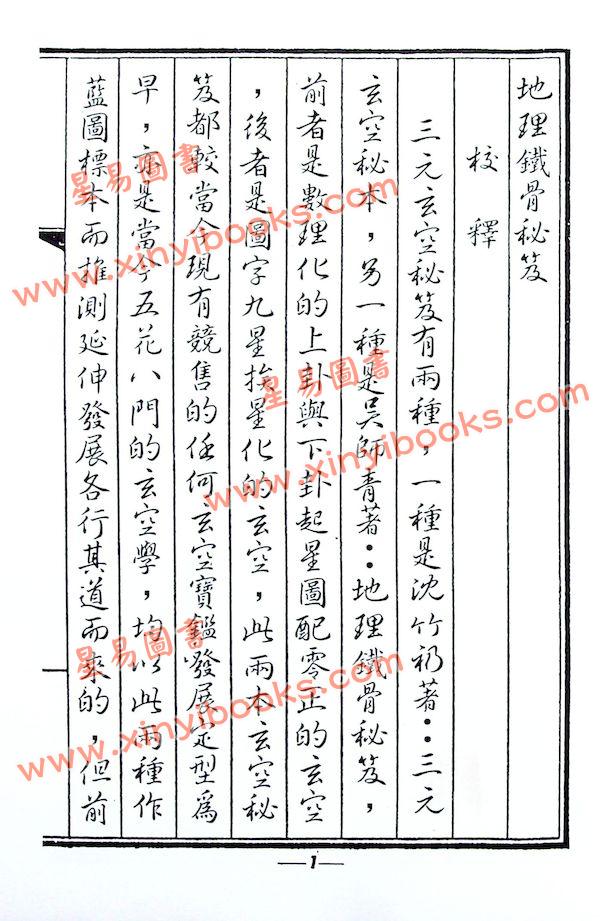 地理鐵骨秘笈
校釋
三元玄空秘笈有兩種，一種是沈竹礽著：三元
玄空秘本，另一種是吳師青著：地理鐵骨秘笈，
前者是數理化的上卦與下卦起星圖配零正的玄空
，後者是圖字九星挨星化的玄空，此兩本玄空秘
笈都較當今現有競售的任何玄空寶鑑發展定型為
早，亦是當今五花八門的玄空學，均以此兩種作
藍圖標本而推測延伸發展各行其道而來的，但前
1
星易圖書
www.xinyibooks.com
星易圖書
www.xinyibooks.com
星易圖書
www.xinyibooks.com